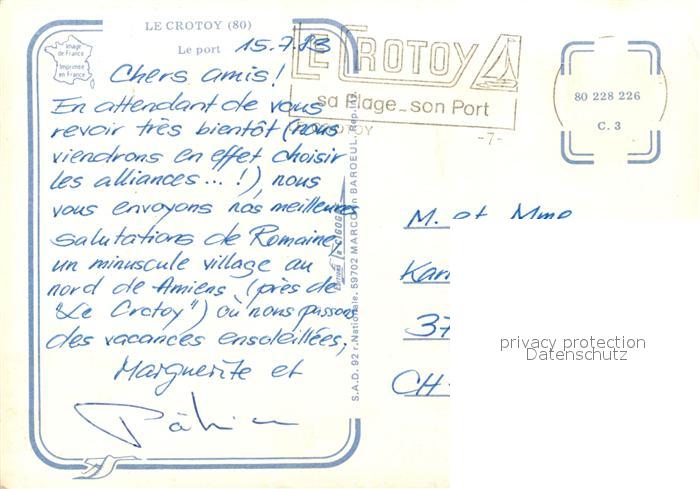 LE CROTOY (80)
Le port
15.7.83
Image
de France
Imprimée
en France
Chers amis!
En attendant de vous
revoir très bientôt (nous
viendrons en effet choisir
les alliances...!), nous
vous envoyons nos meilleures
salutations de Romaine,
un minuscule village au
nord de Amiens (près de
"Le Crotoy") où nous passons
des vacances ensoleillées,
Marguerite et
LE CROTOY
sa Plage_son Port
CROTOY
-7-
S.A.D. 92 r. Nationale. 59702 MARCQ en BAROEUL. Rep. Int.
80 228 226
C. 3
M. et Mme
37
CH-
privacy protection
Datenschutz